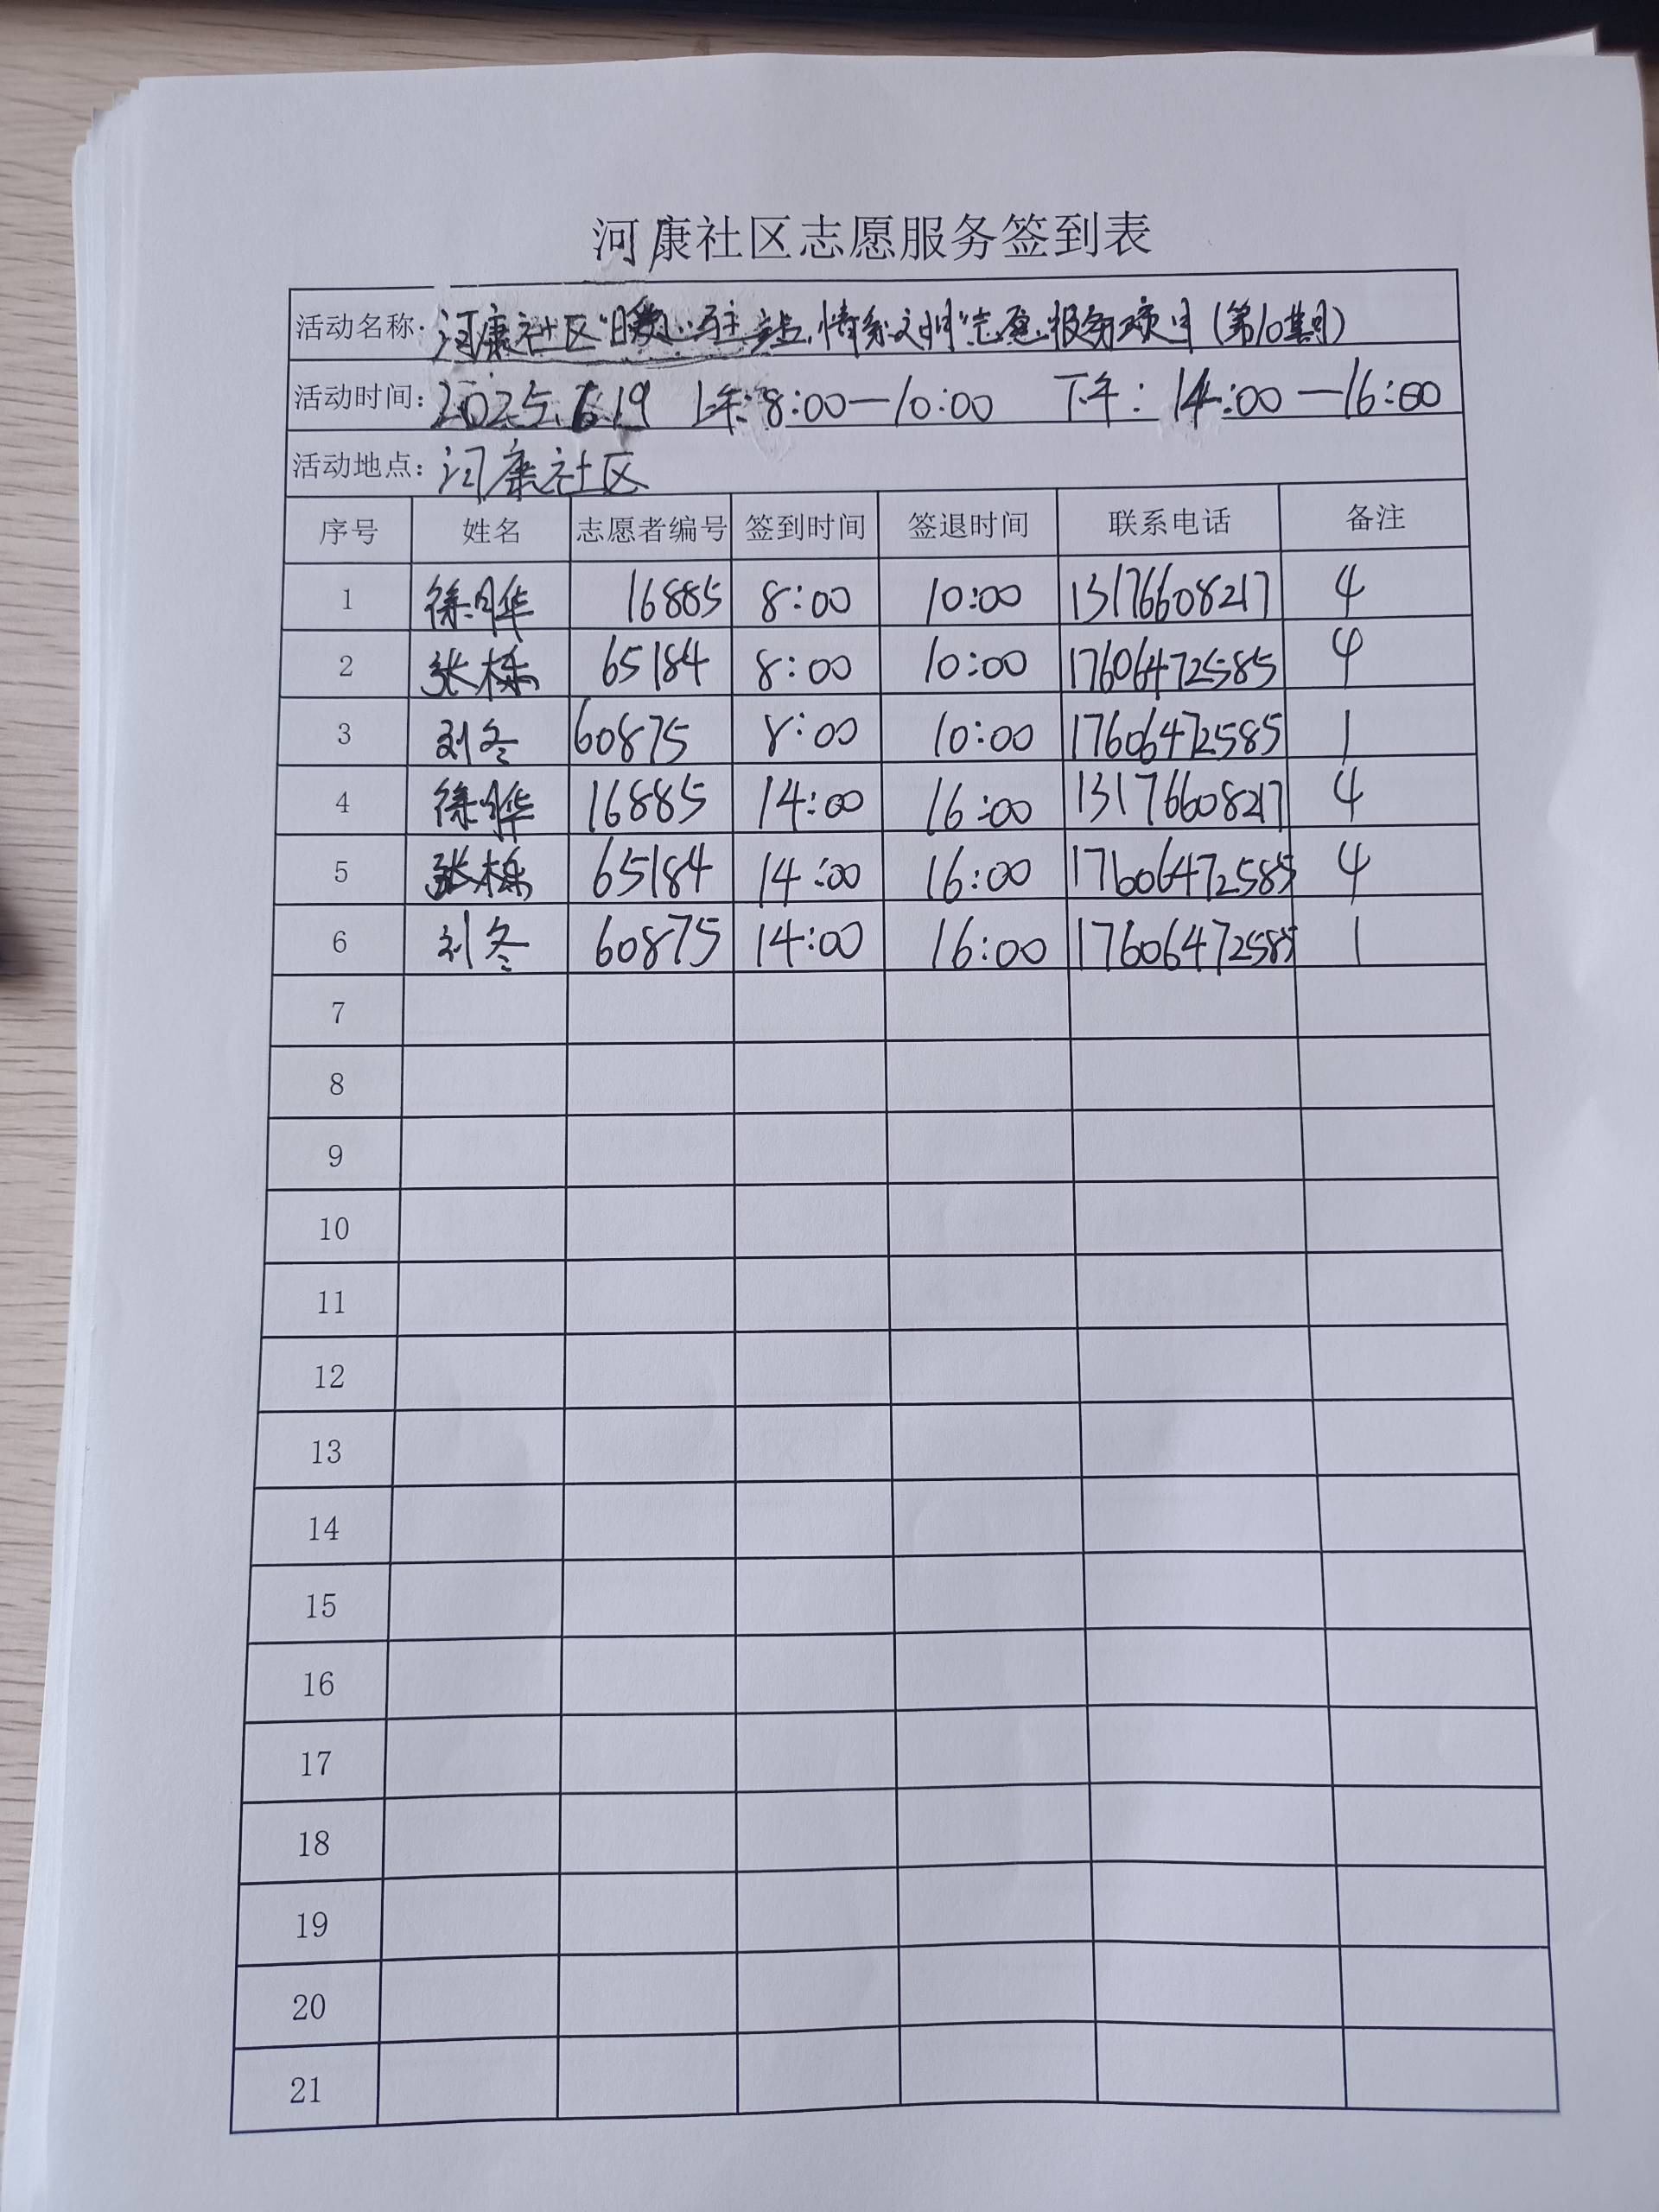 河康社区志愿服务签到表
活动名称：河康社区"暖心驻站,情系文明"志愿服务项目(第10期)
活动时间：2025.6.19 上午:8:00—10:00 下午：14:00—16:00
活动地点：河康社区
序号 姓名 志愿者编号 签到时间 签退时间 联系电话 备注
1 徐月华 16885 8:00 10:00 13176608217 4
2 张栋 65184 8:00 10:00 17606472585 4
3 刘冬 60875 8:00 10:00 17606472585 1
4 徐月华 16885 14:00 16:00 13176608217 4
5 张栋 65184 14:00 16:00 17606472585 4
6 刘冬 60875 14:00 16:00 17606472585 1
7
8
9
10
11
12
13
14
15
16
17
18
19
20
21